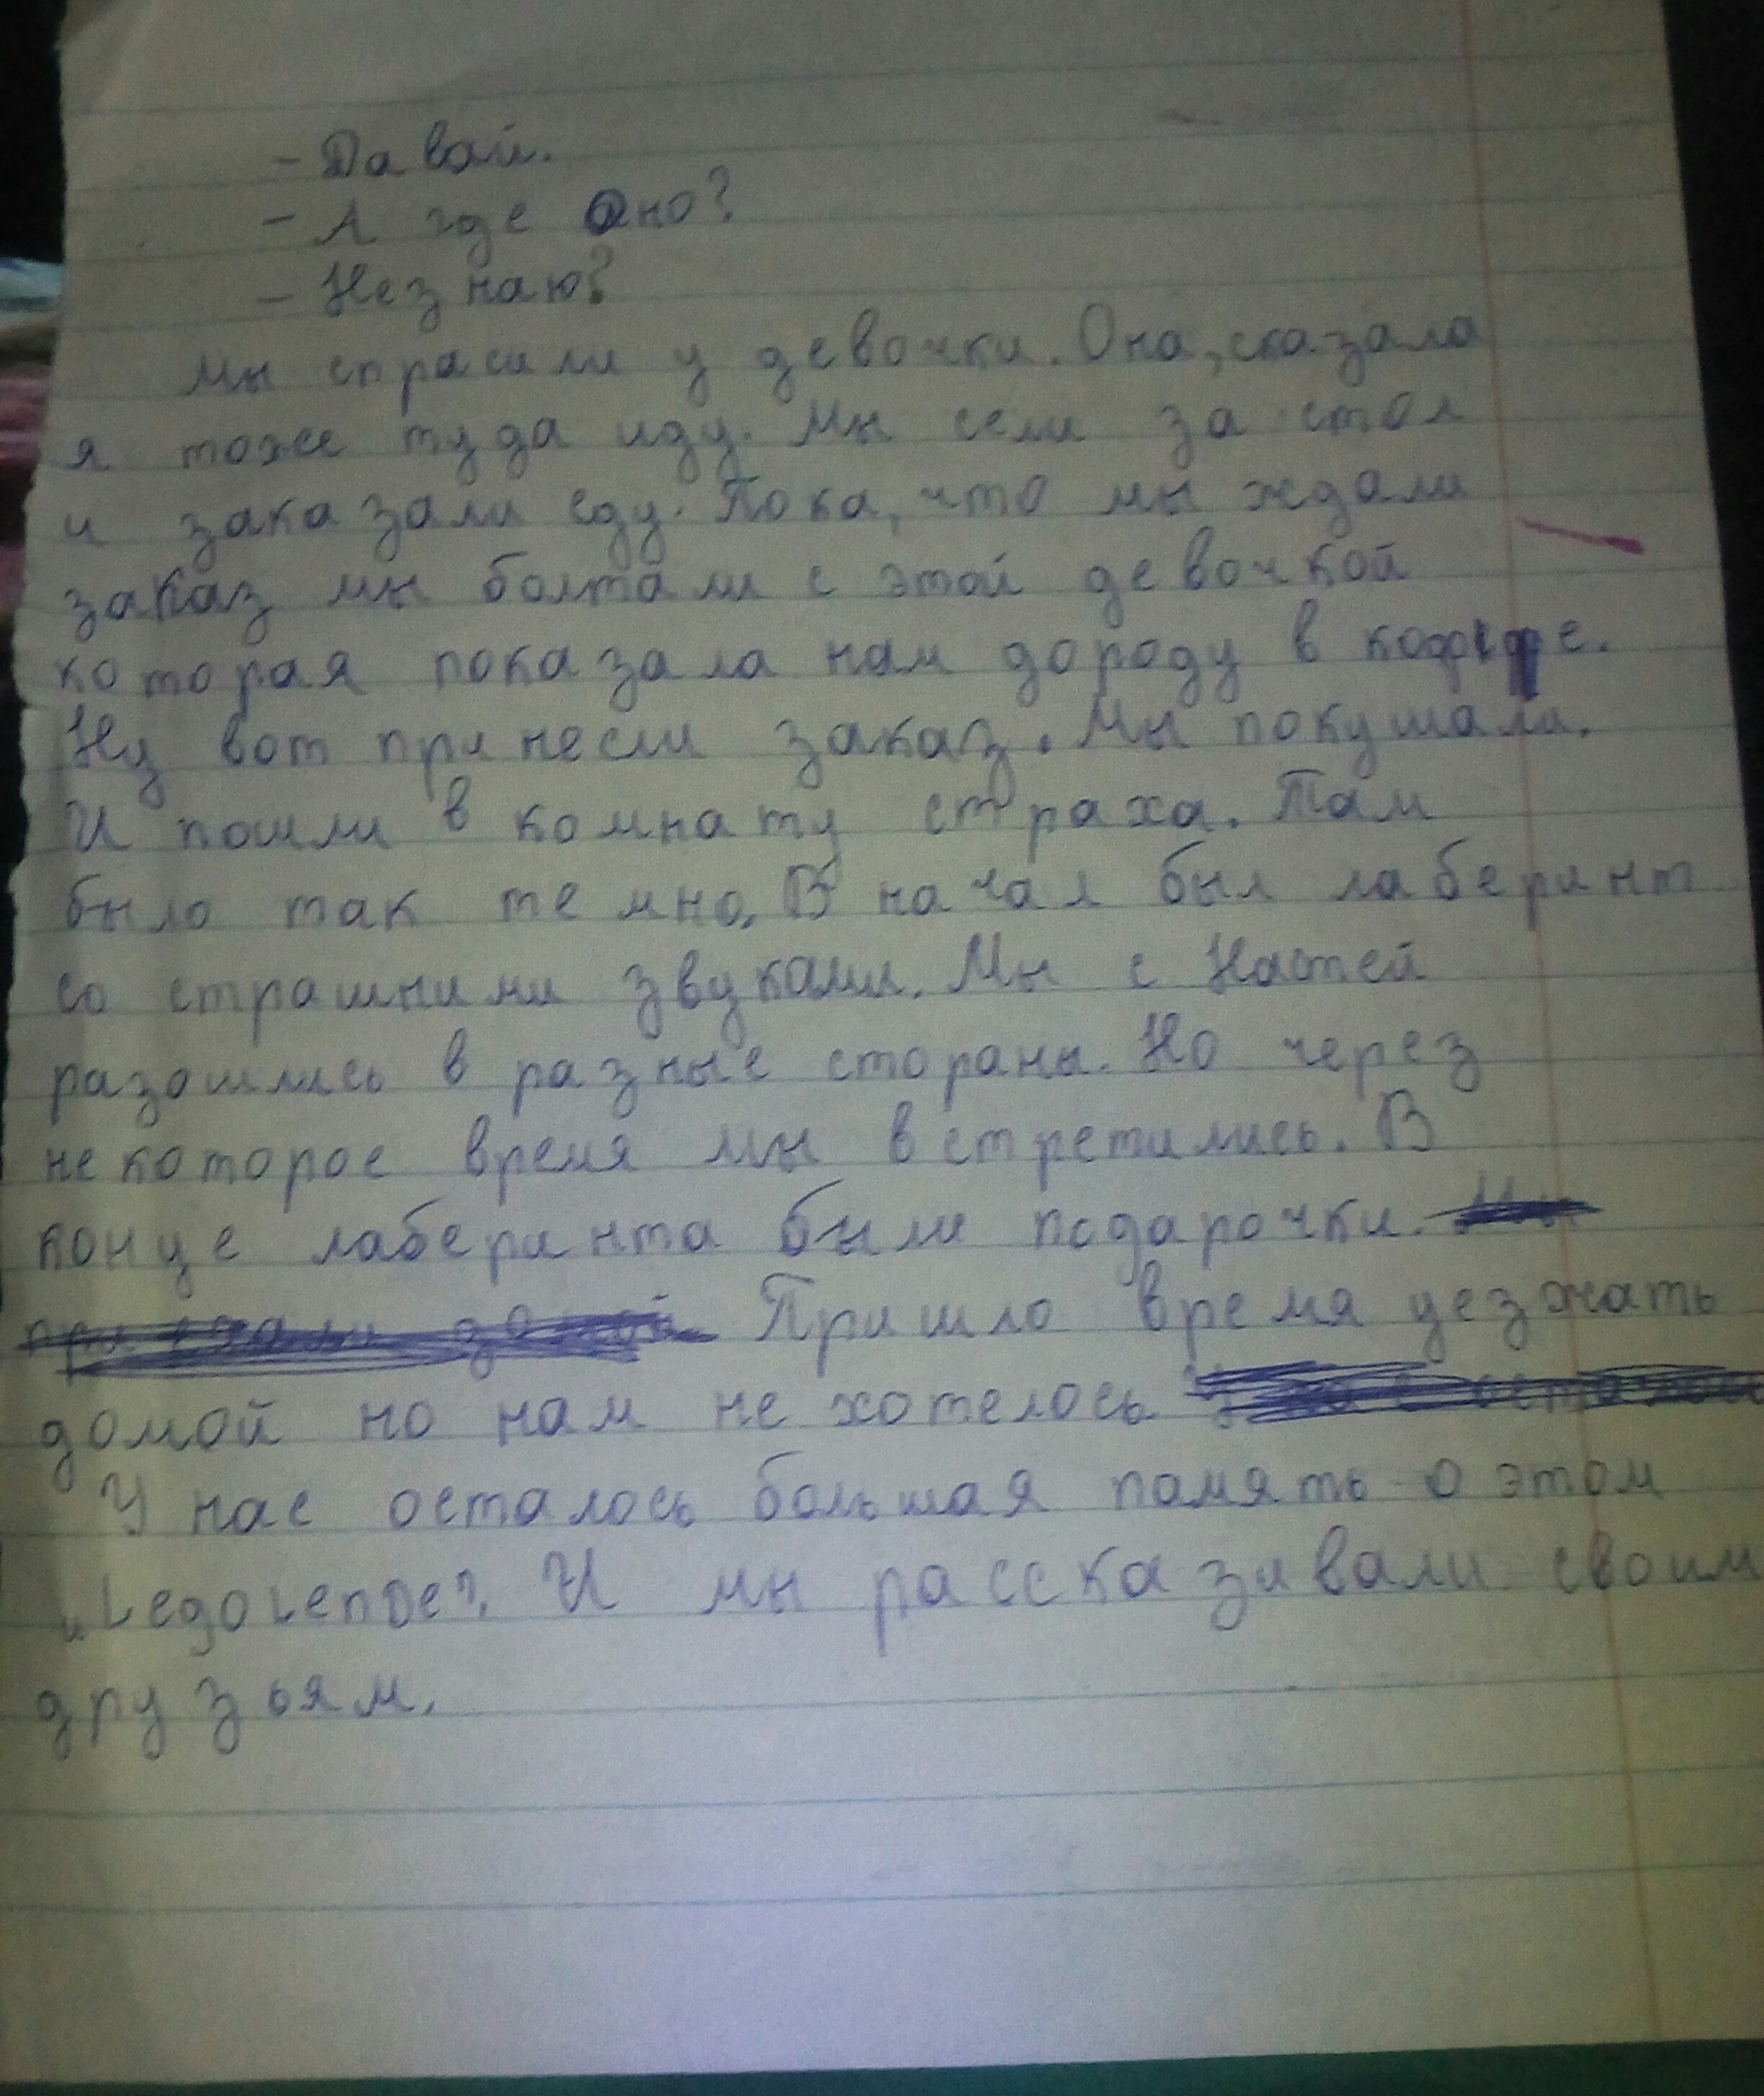 - Давай.
- А где оно?
- Незнаю?
Мы спрасили у девочки. Она, сказала
я тоже туда иду. Мы сели за стол
и заказали еду. Пока, что мы ждали
заказ мы болтали с этой девочкой
которая показала нам дорогу в
Ну вот принесли заказ. Мы покушали.
И пошли в комнату страха. Там
было так темно. В начал был лаберинт
со страшными звуками. Мы с Настей
разошлись в разные стораны. Но через
некоторое время мы встретились. В
конце лаберинта были подарочки.
Пришло время уезжать
домой но нам не хотелось.
У нас осталось большая память о этом
„LegoLenDe". И мы рассказивали своим
друзьям.